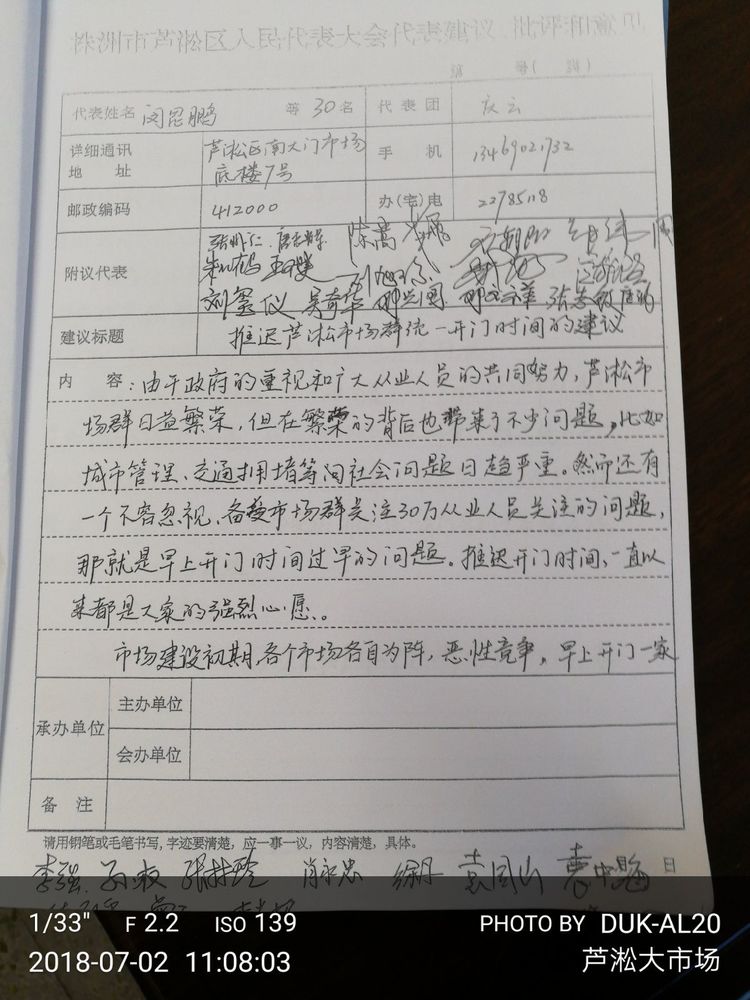 株洲市芦淞区人民代表大会代表建议、批评和意见
第 号( 类)
代表姓名 等30名 代表团 庆云
详细通讯地址 芦淞区南大门市场底楼7号 手机 13469021732
邮政编码 412000 办(宅)电 22785118
附议代表
建议标题 推迟芦淞市场群统一开门时间的建议
内 容:由于政府的重视和广大从业人员的共同努力,芦淞市
场群日益繁荣,但在繁荣的背后也带来了不少问题,比如
城市管理、交通拥堵等间社会问题日趋严重。然而还有
一个不容忽视、备受市场群关注30万从业人员关注的问题,
那就是早上开门时间过早的问题。推迟开门时间,一直以
来都是大家的强烈心愿。
市场建设初期,各个市场各自为阵,恶性竞争,早上开门一家
承办单位
主办单位
会办单位
备 注
请用钢笔或毛笔书写,字迹要清楚,应一事一议,内容清楚,具体。
李强 张林玲 肖永忠 徐丹 袁国山
日
1/33" F 2.2 ISO 139 PHOTO BY DUK-AL20
2018-07-02 11:08:03 芦淞大市场